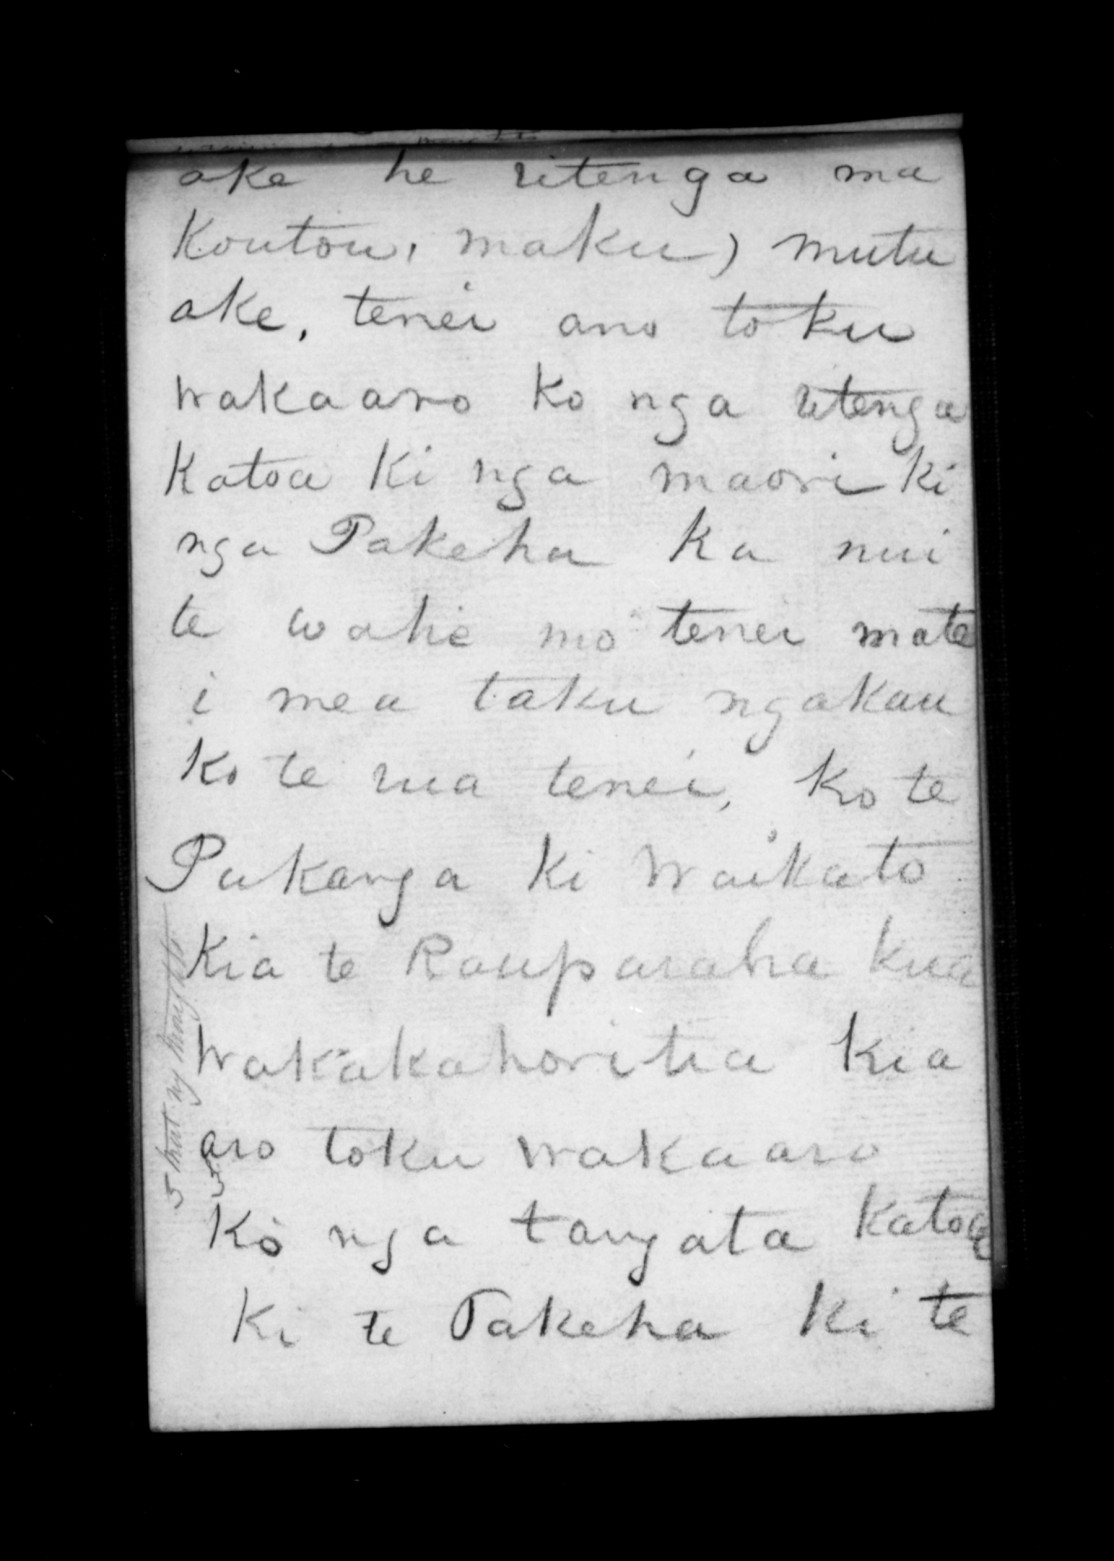 ake he ritenga ma
Koutou, maku) mutu
ake, tenei ano toku
wakaaro ko nga ritenga
Katoa Ki nga maori ki
nga Pakeha Ka nui
te wahi mo tenei mate
i mea taku ngakau
ko te rua tenei, Ko te
Pakanga Ki Waikato
Kia te Rauparaha kua
Wakakahoritia Kia
aro toku wakaaro
Ko nga tangata Katoa
Ki te Pakeha Ki te
5 that my thoughts
5